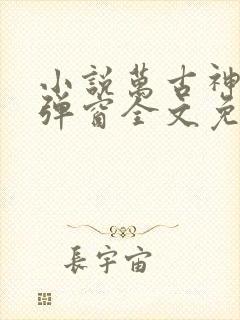 小說萬古神
彈窗全文免
長宇宙